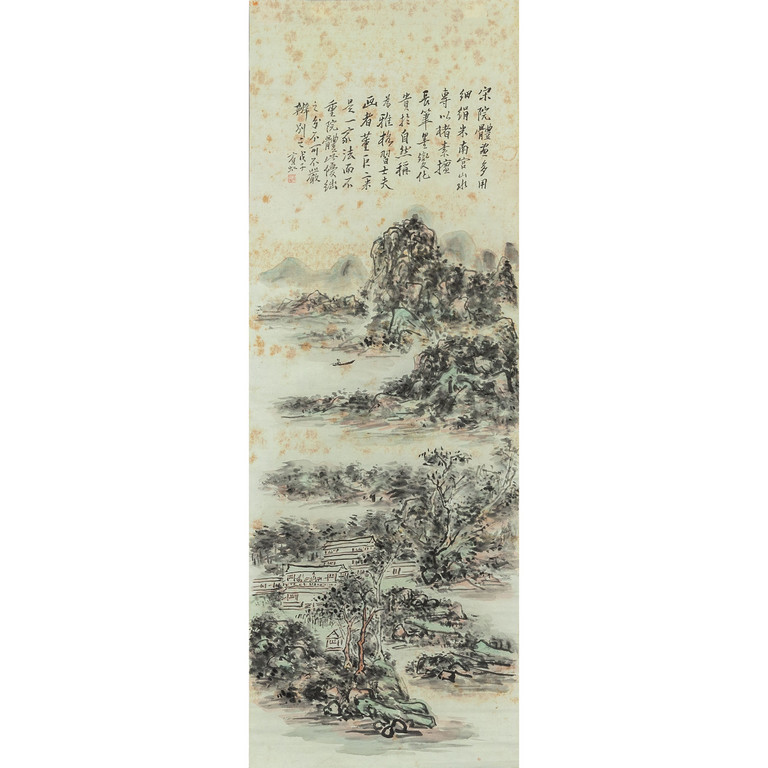 宋院體畫多用
細絹米南宮山水
專以楮素擅
長筆墨變化
貴於自然稱
為雅格習士夫
画者董巨二米
是一家法而不
重院體以優絀
之分不可不嚴
辨別之戊子賓虹